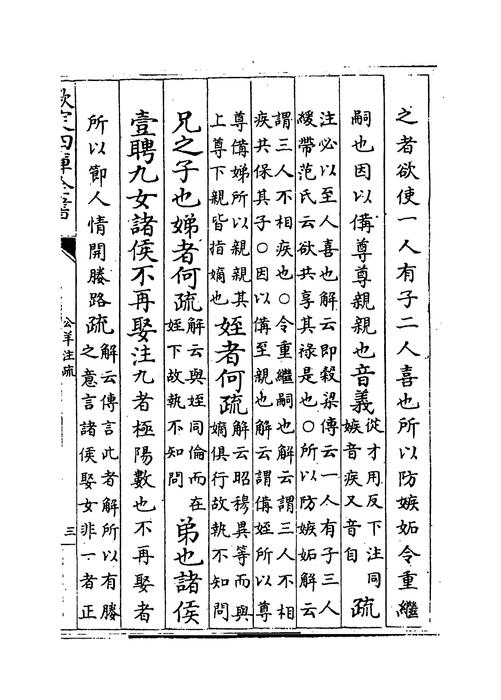 之者欲使一人有子二人喜也所以防嫉妬令重繼
嗣也因以備尊尊親親也音義從才用反下注同嫉音疾又音自疏
注必以至人喜也解云即穀梁傳云一人有子三人
緩帶范氏云欲共享其祿是也○所以防嫉妬解云
謂三人不相疾也○令重繼嗣也解云謂三人不相
疾共保其子○因以備至親也解云謂備姪所以尊
尊備娣所以親親其上尊下親皆指嫡也姪者何疏解云昭穆異等而與嫡俱行故執不知問
兄之子也娣者何疏解云與姪同倫而在姪下故執不知問弟也諸侯
壹聘九女諸侯不再娶注九者極陽數也不再娶者
所以節人情開勝路疏解云傳言此者解所以有勝之意言諸侯娶女非一者正
欽定四庫全書
公羊注疏
三